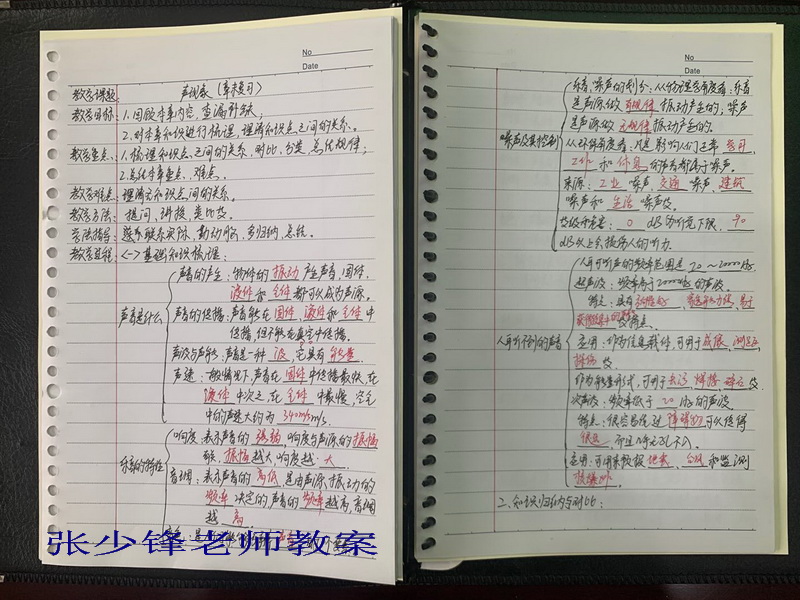 No
Date
教学课题: 声现象 (章末复习)
教学目标: 1.回顾本章内容, 查漏补缺;
2.对本章知识进行梳理, 理清知识点之间的关系。
教学重点: 1.梳理知识点之间的关系, 对比、分类、总结规律;
2.总结本章重点、难点。
教学难点: 理清知识点间的关系。
教学方法: 提问、讲授、类比法。
学法指导: 联系实际, 勤动脑, 多归纳, 总结。
教学过程: <一>基础知识梳理:
声音的产生: 物体的振动产生声音, 固体、
液体和气体都可以成为声源。
声音是什么
声音的传播: 声音能在固体、液体和气体中
传播, 但不能在真空中传播。
声波与声能: 声音是一种波, 它具有能量
声速: 一般情况下, 声音在固体中传播最快, 在
液体中次之, 在气体中最慢, 空气
中的声速大约为340m/s
响度: 表示声音的强弱, 响度与声源的振幅
有关, 振幅越大, 响度越大
乐音的特性
音调: 表示声音的高低, 是由声源振动的
频率决定的, 声音的频率越高, 音调
越高
张少锋老师教案
No
Date
乐音、噪声的划分: 从物理学角度看: 乐音
是声源做有规律振动产生的; 噪声
是声源做无规律振动产生的。
噪声及其控制
从环保角度看: 凡是影响人们正常学习、
工作和休息的声音都属于噪声。
来源: 工业噪声, 交通噪声, 建筑
噪声和生活噪声及。
0 dB为听觉下限, 90
dB以上会损伤人的听力.
人耳可听声的频率范围是20~20000Hz
超声波: 频率高于20000Hz的声波。
特点: 具有
人耳听不到的声音
应用: 作为信息载体, 可用于成像, 测距,
探伤及
作为能量形式, 可用于去污 焊接 碎石及
次声波: 频率低于20Hz的声波。
特点: 很容易绕过障碍物, 可以传得
很远, 而且无孔不入。
应用: 可用来预报地震、台风和监测
核爆炸。
二、知识归纳与对比: